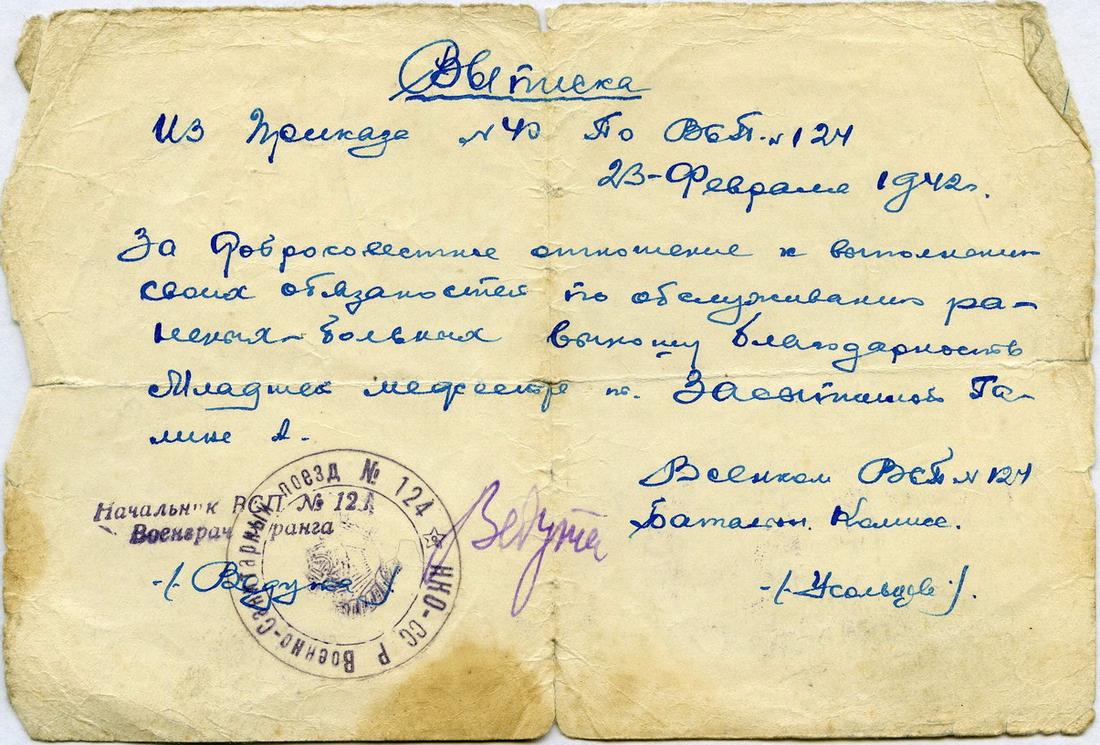 Выписка
Из Приказа №40 По ВСП-№124
23-Февраля 1942г.
За добросовестное отношение к выполнению
своих обязаностей по обслуживанию ра-
неных-больных выношу благодарность
Младшей медсестре т. Засыпкиной Га-
лине А.
Военком ВСП №124
Баталион. Комисс.
Начальник ВСП № 124
Военврач ранга
-/. Ведута /.
Ведута
-/. Усольцев /.
НКО-СССР Военно-Санитарный поезд № 124